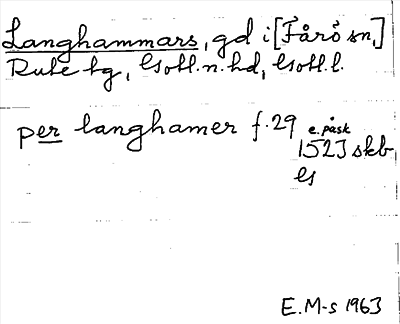 Langhammars, gd i [Fårö sn,]
Rute tg, Gotl. n. hd, Gotl. l.
per langhamer f. 29 e. påsk
1523 skb
Gs
E. M-s 1963